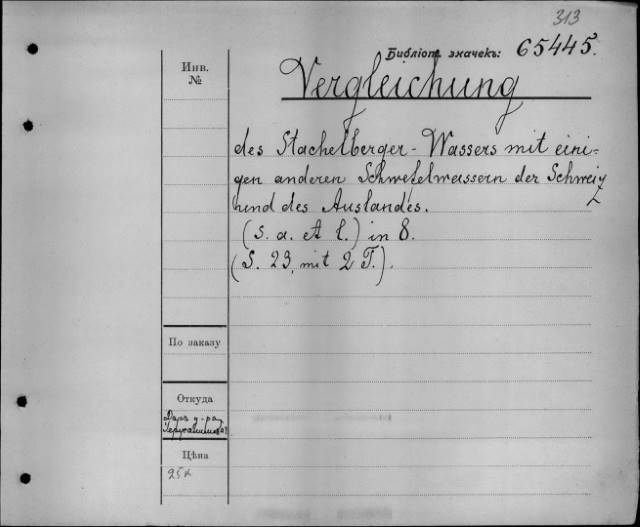 313
Библіот. значекъ: 65445.
Инв.
№
Vergleichung
des Stachelberger-Wassers mit eini-
gen anderen Schwefelwassern der Schweiz
und des Auslandes.
(S. a. et l.) in 8.
(S. 23, mit 2 T.).
По заказу
Откуда
Даръ д-ра
Цѣна
25к